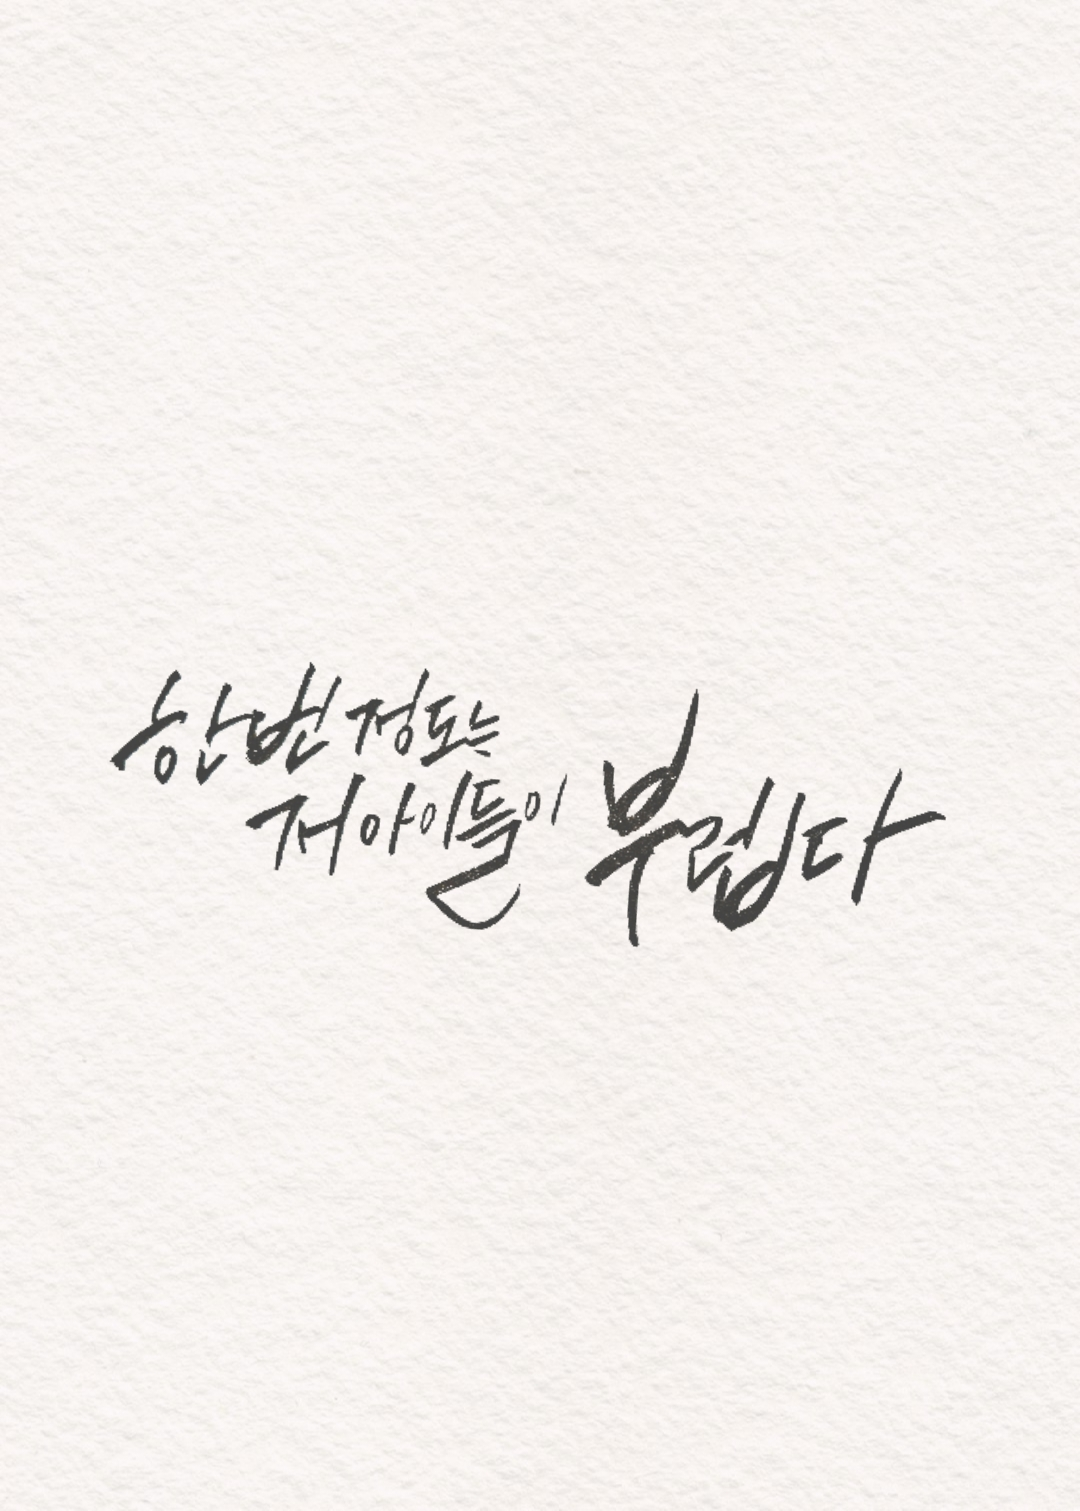 한번 정도는
저 아이들이 부럽다